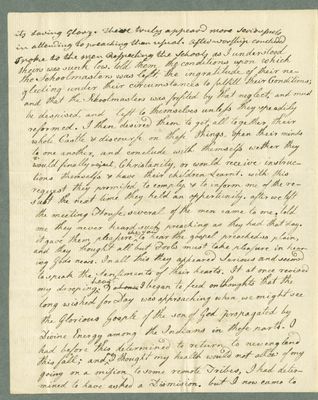 its saving Glory. there truly appeard more seriousness
in attending to preaching than usual. After worship concluded
Spoke to the men respecting the Schools as I understood
theirs was sunk low. told them, the conditions upon which
the Schoolmasters was left the ingratitude of their ne-
glecting under their circumstances to fulfill their Conditions;
and that the Schoolmasters was justified by that neglect and must
be despised, and left to themselves unless they speedily
reformed. I then desired them to get all together their
whole Castle & discourse on these things, Open their minds
to one another, and conclude with themselves wether they
would finally reject Christianity, or would receive instruc-
tions themselves & have their children learnt. with this
request they promised to comply & to inform me of the re-
sult the next time they held an opportunity. after we left
the meeting House, several of the men came to me, told
me they never heard such preaching as they had that day.
it gave them pleasure to hear the gospel preached so plain,
and they thought all but Fools must take pleasure in hear-
ing Gods news. In all this they appeared serious and seemd
to speak the sentiments of their hearts. It at once revived
my drooping hope I began to feed on thoughts that the
long wished for Day was approaching when we might see
the Glorious Gospel of the son of God propagated by
Divine Energy among the Indians in these parts. I
had before this determined to return to new england
this fall: and, I thought my health would not allow of my
going on a mission to some remote Tribes, I had deter-
mined to have asked a Dismision. but I now came to